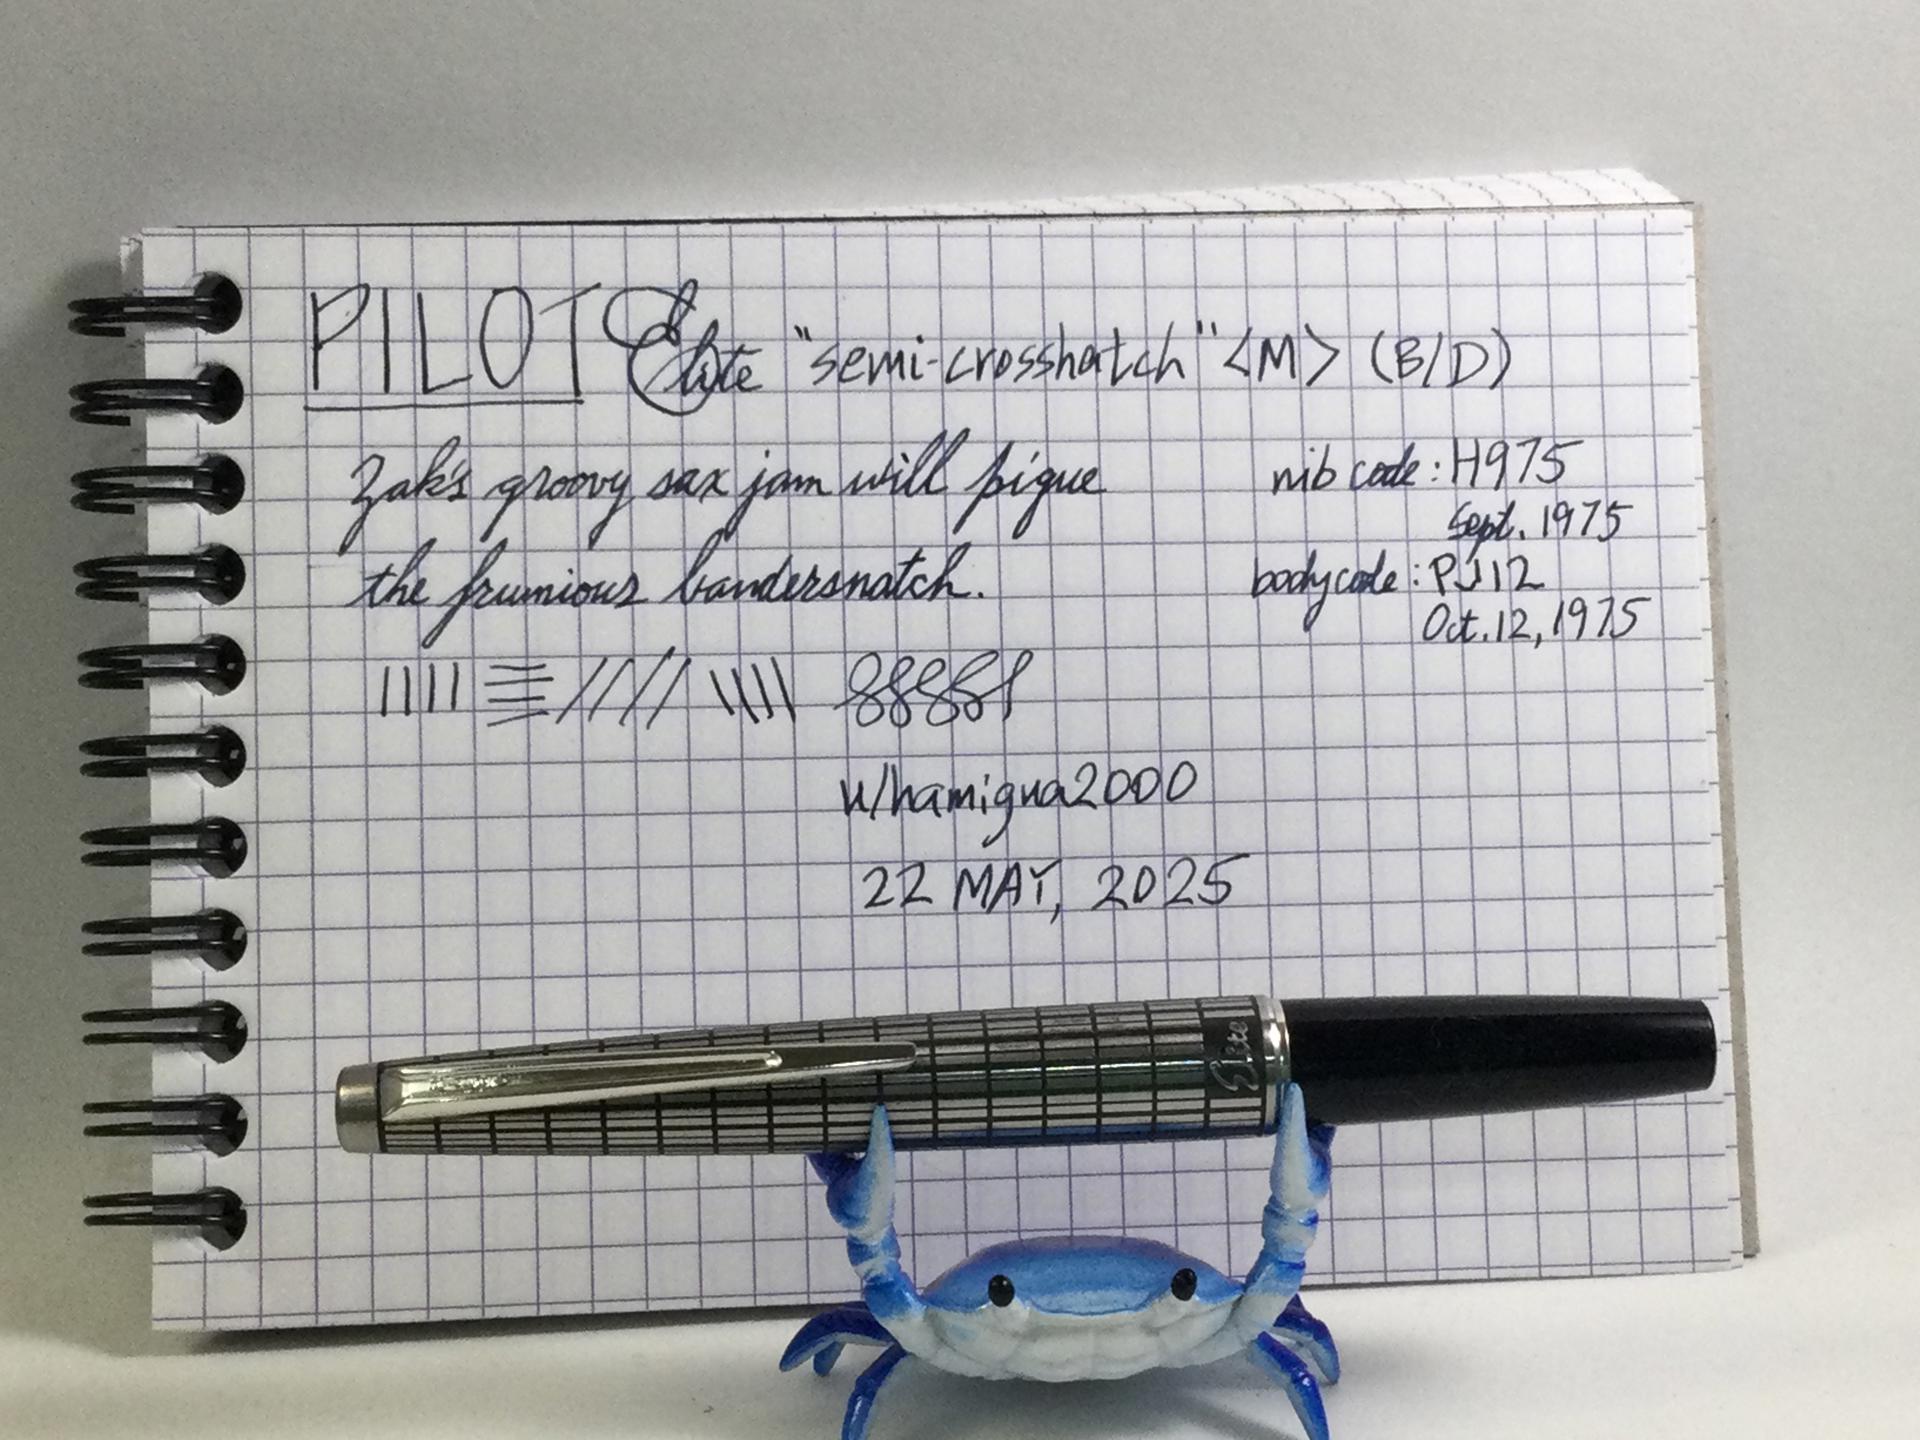 PILOT Elite "semi-crosshatch" <M> (B/D)
Zak's groovy sax jam will pique
the frumious bandersnatch.
nib code: H975
Sept. 1975
body code: PJ12
Oct. 12, 1975
u/hamigua2000
22 MAY, 2025
Elite